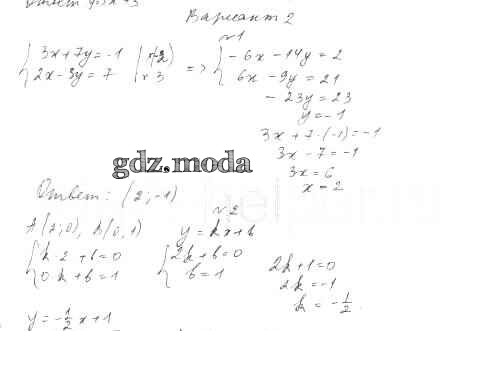 Вариант 2
№1
{ 3x + 7y = -1 | ·(-2)
{ 2x - 3y = 7 | · 3
=> { -6x - 14y = 2
{ 6x - 9y = 21
- 23y = 23
y = -1
3x + 7·(-1) = -1
3x - 7 = -1
3x = 6
x = 2
gdz.moda
Ответ: (2; -1)
№2
A(2;0), B(0,1) y = kx + b
{ k·2 + b = 0
{ 0·k + b = 1
{ 2k + b = 0
{ b = 1
2k + 1 = 0
2k = -1
k = -1/2.
y = -1/2 x + 1